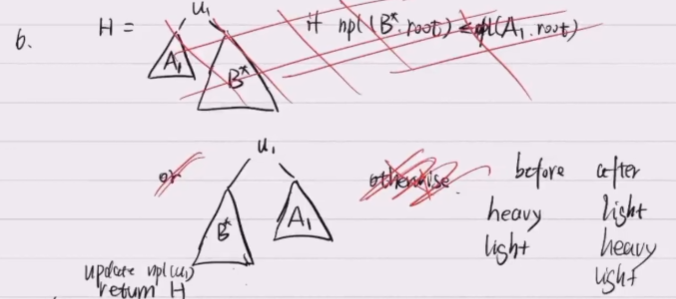 6. H = u₁ if npl(B*.root) ≤ npl(A₁.root)
A₁ B*
or u₁ otherwise before after
B* A₁ heavy light
light heavy
light
update npl(u₁)
return H